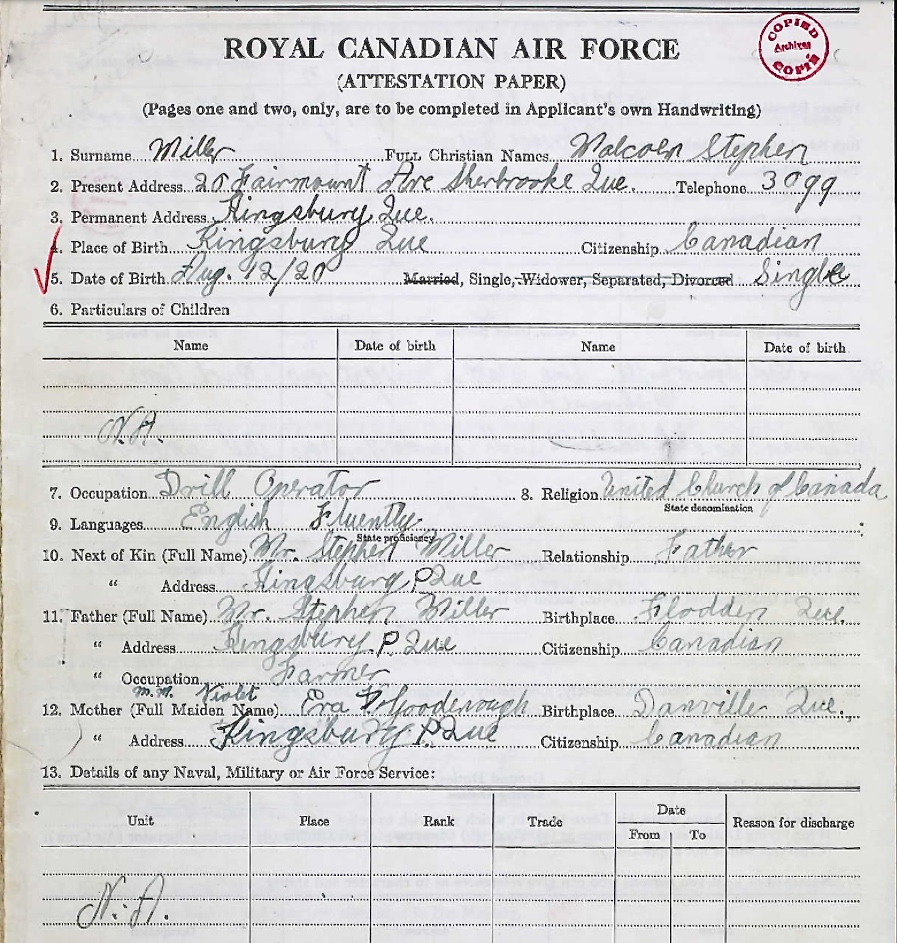 COPIED
Archives
COPIÉ
ROYAL CANADIAN AIR FORCE
(ATTESTATION PAPER)
(Pages one and two, only, are to be completed in Applicant's own Handwriting)
1. Surname Miller FULL Christian Names Malcolm Stephen
2. Present Address 20 Fairmount Ave Sherbrooke Que. Telephone 3099
3. Permanent Address Kingsbury Que.
4. Place of Birth Kingsbury Que Citizenship Canadian
5. Date of Birth Aug. 12/20 Married, Single, Widower, Separated, Divorced Single
6. Particulars of Children
Name Date of birth Name Date of birth
N.A.
7. Occupation Drill Operator 8. Religion United Church of Canada
State denomination
9. Languages English Fluently
State proficiency
10. Next of Kin (Full Name) Mr. Stephen Miller Relationship Father
" Address Kingsbury P Que
11. Father (Full Name) Mr. Stephen Miller Birthplace Flodden Que.
" Address Kingsbury P Que Citizenship Canadian
" Occupation Farmer
Violet
12. Mother (Full Maiden Name) Eva Goodenough Birthplace Danville Que.
" Address Kingsbury P. Que Citizenship Canadian
13. Details of any Naval, Military or Air Force Service:
Unit Place Rank Trade Date Reason for discharge
From To
N.A.